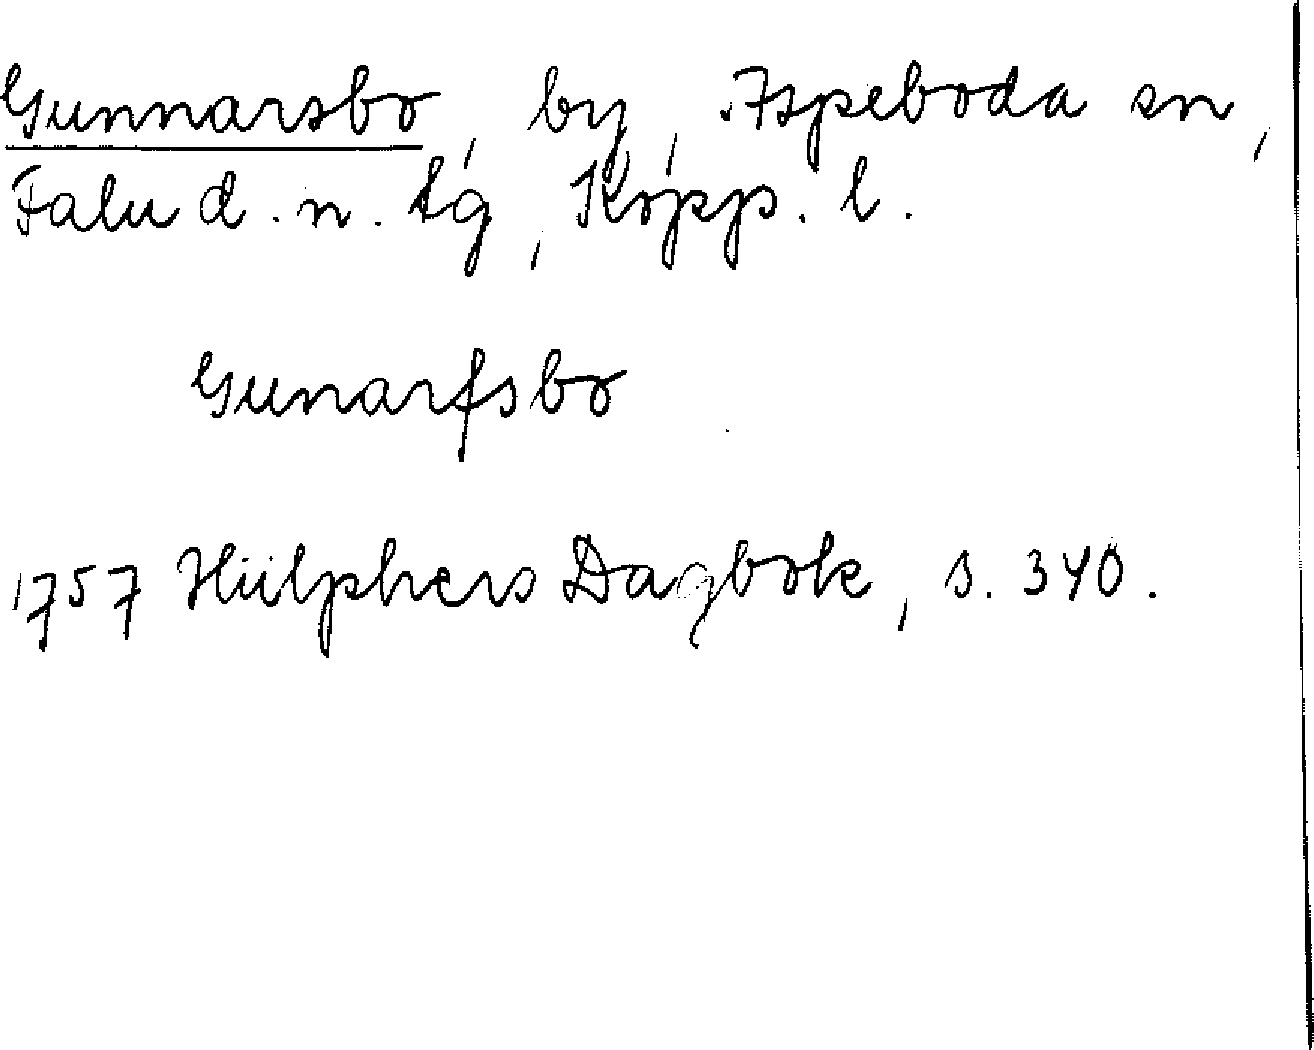 Gunnarsbo, by, Aspeboda sn,
Falu d. n. tg, Kopp. l.
Gunarfsbo
1757 Hülphers Dagbok, s. 340.